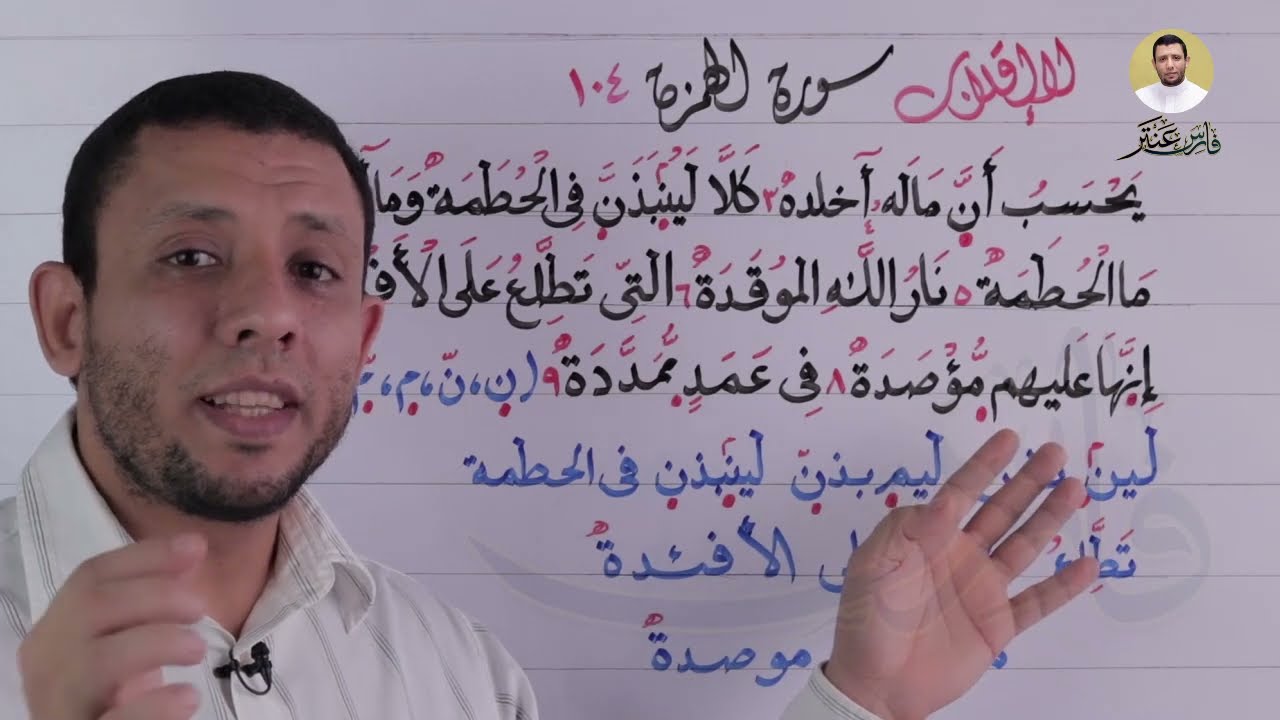 الإقلاب سورة الهمزة ١٠٤
فارس عنتر
يَحْسَبُ أَنَّ مَالَه أخلده ٣ كَلَّا لَيُنۢبَذَنَّ فِى الْحُطَمَة ٤ وَمَآ
مَا الْحُطَمَة ٥ نَارُ اللَّهِ الموقَدَة ٦ الَّتِى تَطَّلِعُ عَلَى الْأَفْ
إِنَّهَا عَليهم مُّؤْصَدَة ٨ فِى عَمَدٍ مُّمَدَّدَة ٩ (ن، نّ، م، مّ
لين ليم بذنّ لينبذن فى الحطمة
تَطَّلِعُ الأفئدة
موصدة